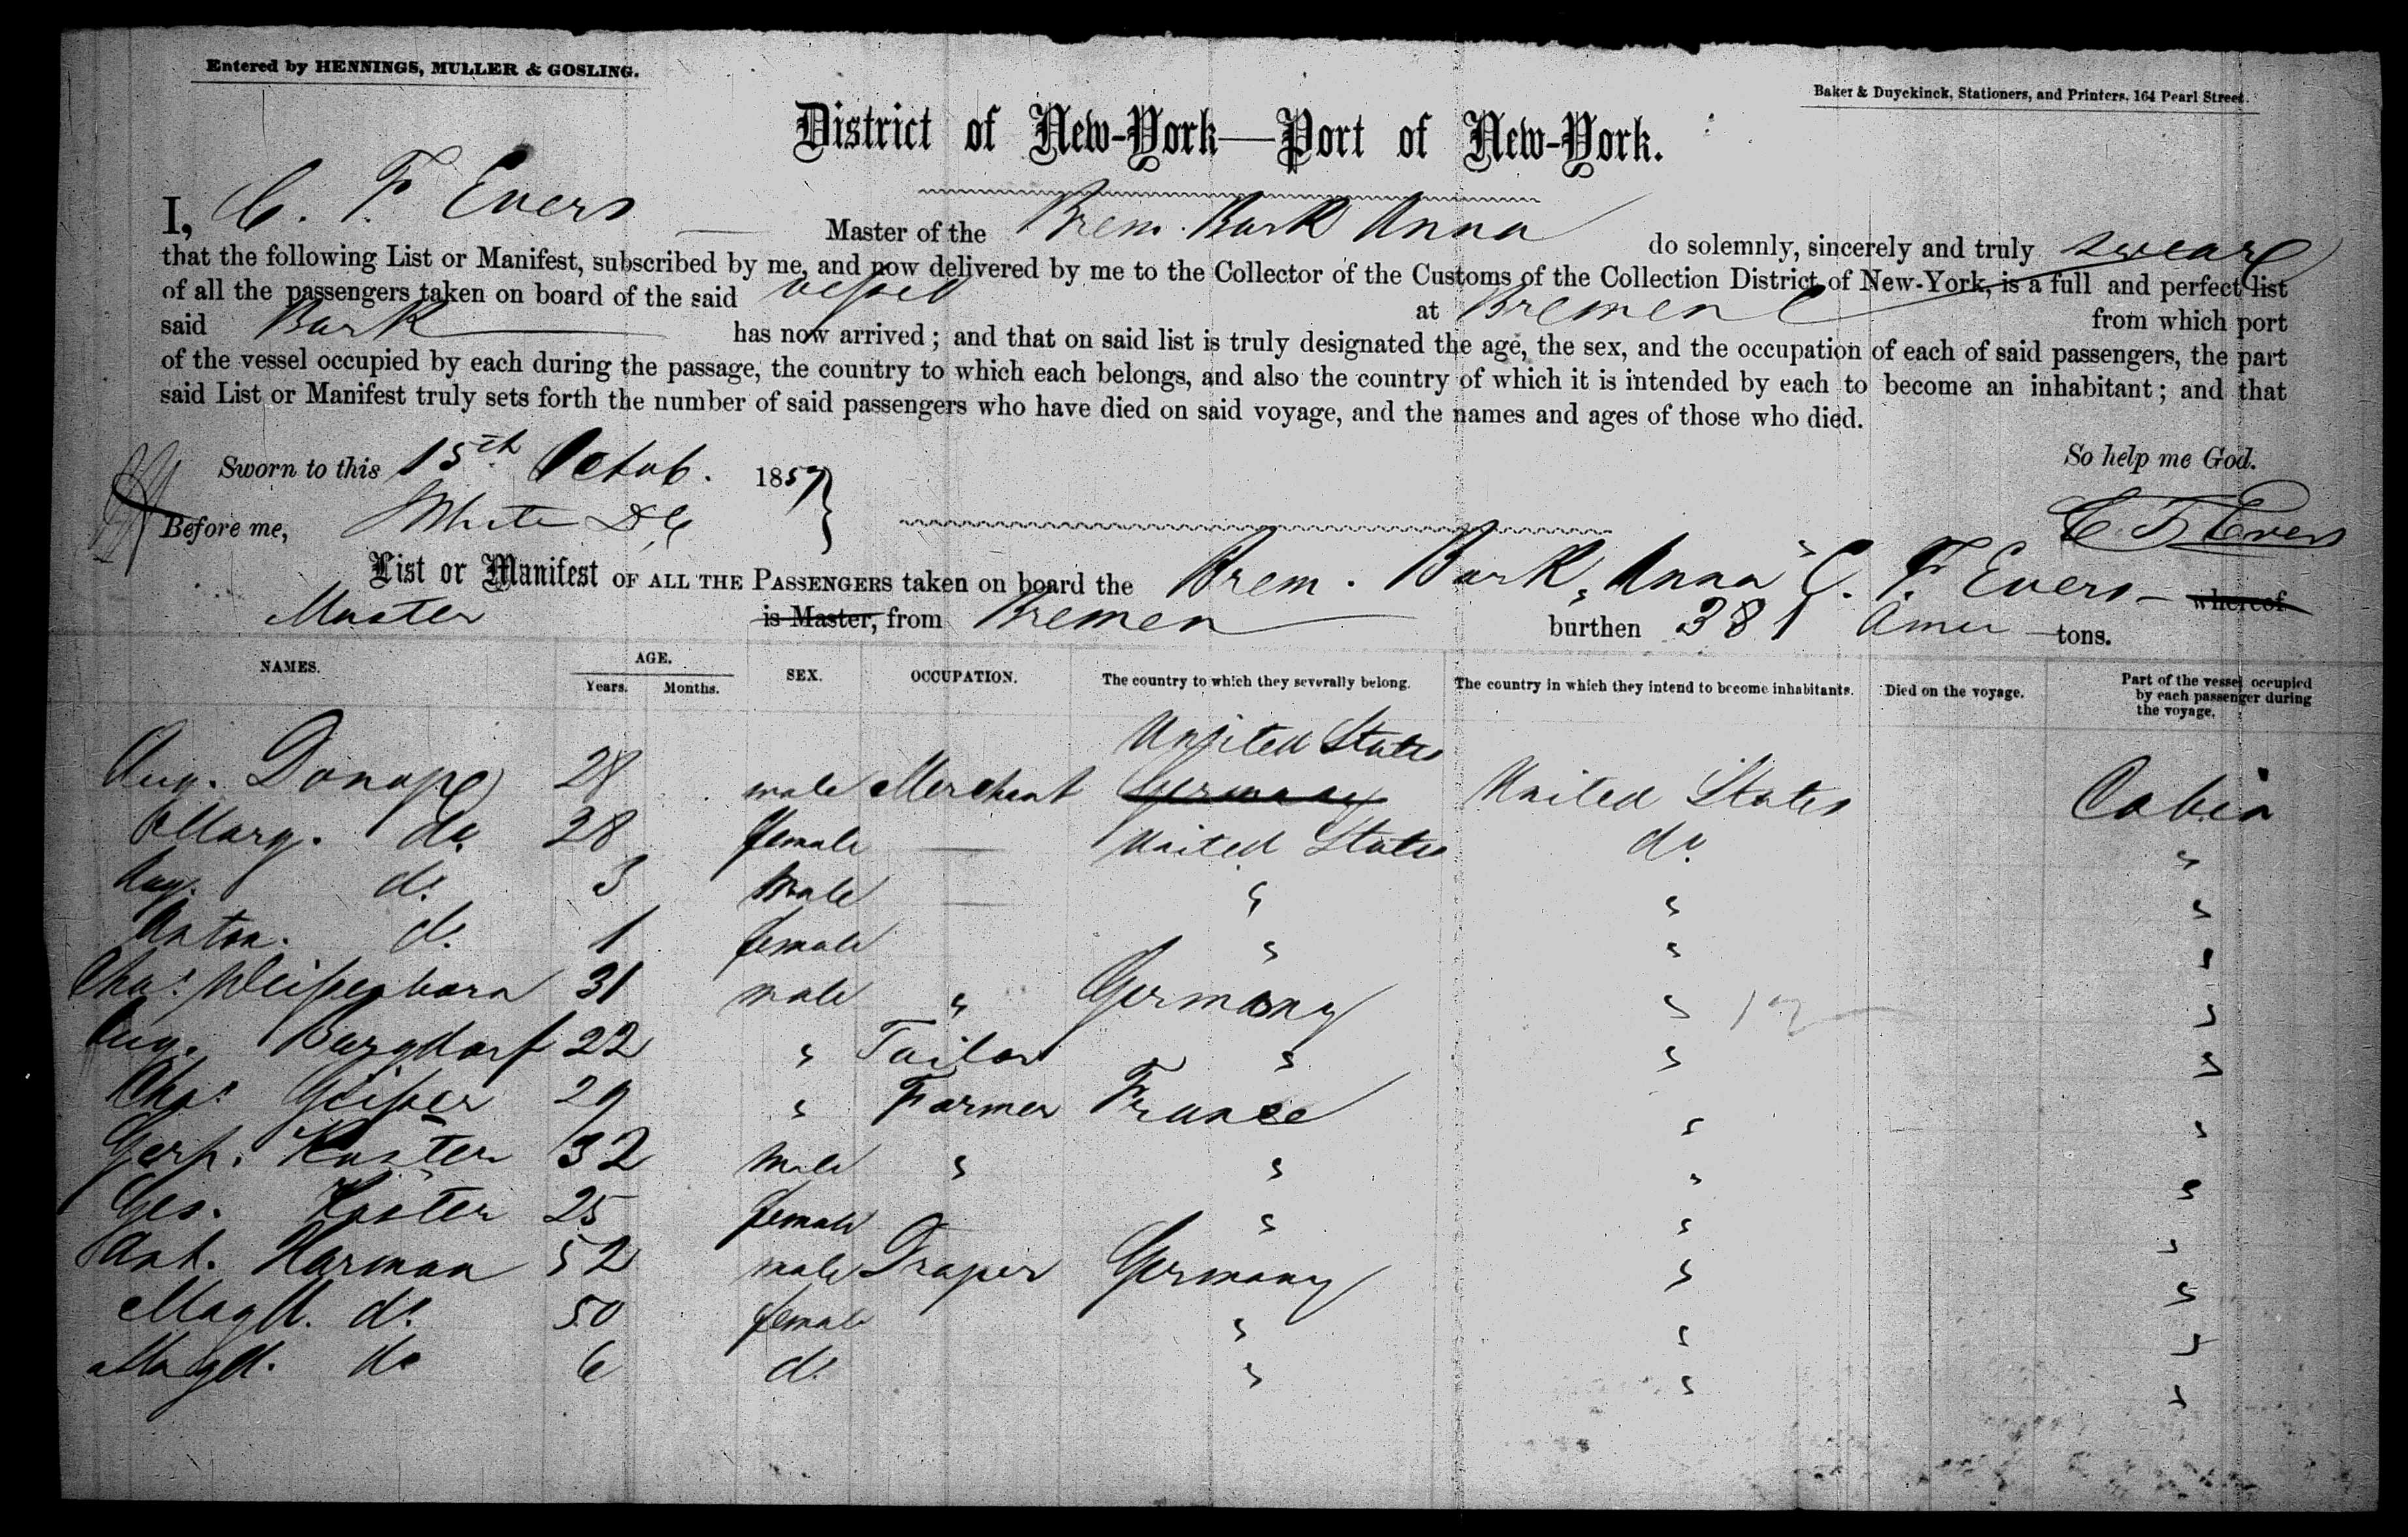 Entered by HENNINGS, MULLER & GOSLING.
Baker & Duyckinck, Stationers, and Printers, 164 Pearl Street.
District of New-York—Port of New-York.
I, C. F. Evers Master of the Brem. Bark Anna do solemnly, sincerely and truly swear
that the following List or Manifest, subscribed by me, and now delivered by me to the Collector of the Customs of the Collection District of New-York, is a full and perfect list
of all the passengers taken on board of the said vessel at Bremen from which port
said Bark has now arrived; and that on said list is truly designated the age, the sex, and the occupation of each of said passengers, the part
of the vessel occupied by each during the passage, the country to which each belongs, and also the country of which it is intended by each to become an inhabitant; and that
said List or Manifest truly sets forth the number of said passengers who have died on said voyage, and the names and ages of those who died.
Sworn to this 15th Octob. 1857 So help me God.
Before me, White C F Evers
List or Manifest OF ALL THE PASSENGERS taken on board the Brem. Bark "Anna" C. F. Evers — whereof
Master is Master, from Bremen burthen 381 Amer tons.
NAMES. AGE. Years. Months. SEX. OCCUPATION. The country to which they severally belong. The country in which they intend to become inhabitants. Died on the voyage. Part of the vessel occupied by each passenger during the voyage.
United States
Aug. Donope 28 male Merchant Germany United States Cabin
Marg. do. 28 female — United States do. "
Aug. do. 3 male — " " "
Anton. do. 1 female " " "
Chas. Weissenborn 31 male " Germany " 12 "
Aug. Bergdorf 22 " Tailor " " "
Chas. 29 " Farmer France " "
Gerh. Koster 32 male " " " "
Ges. Koster 25 female " " "
Ant. Harman 52 male Draper Germany " "
Magd. do. 50 female " " "
Magd. do 6 do. " " "